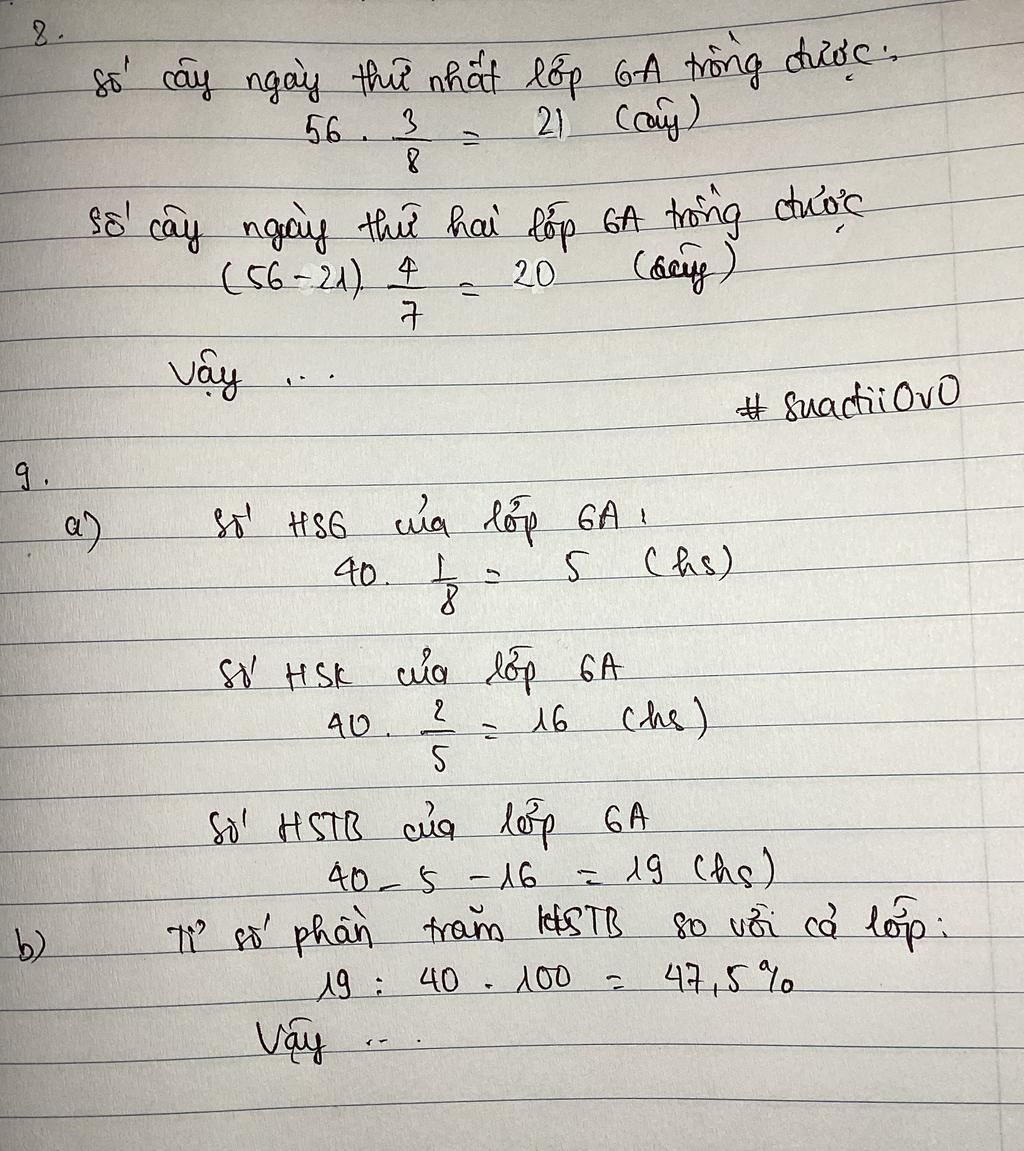 8.
Số cây ngày thứ nhất lớp 6A trồng được:
56 . 3/8 = 21 (cây)
Số cây ngày thứ hai lớp 6A trồng được
(56 - 21) . 4/7 = 20 (cây)
Vậy ...
# suactiiOvO
9.
a) Số HSG của lớp 6A:
40 . 1/8 = 5 (hs)
Số HSK của lớp 6A
40 . 2/5 = 16 (hs)
Số HSTB của lớp 6A
40 - 5 - 16 = 19 (hs)
b) Tỉ số phần trăm HSTB so với cả lớp:
19 : 40 . 100 = 47,5%
Vậy ...